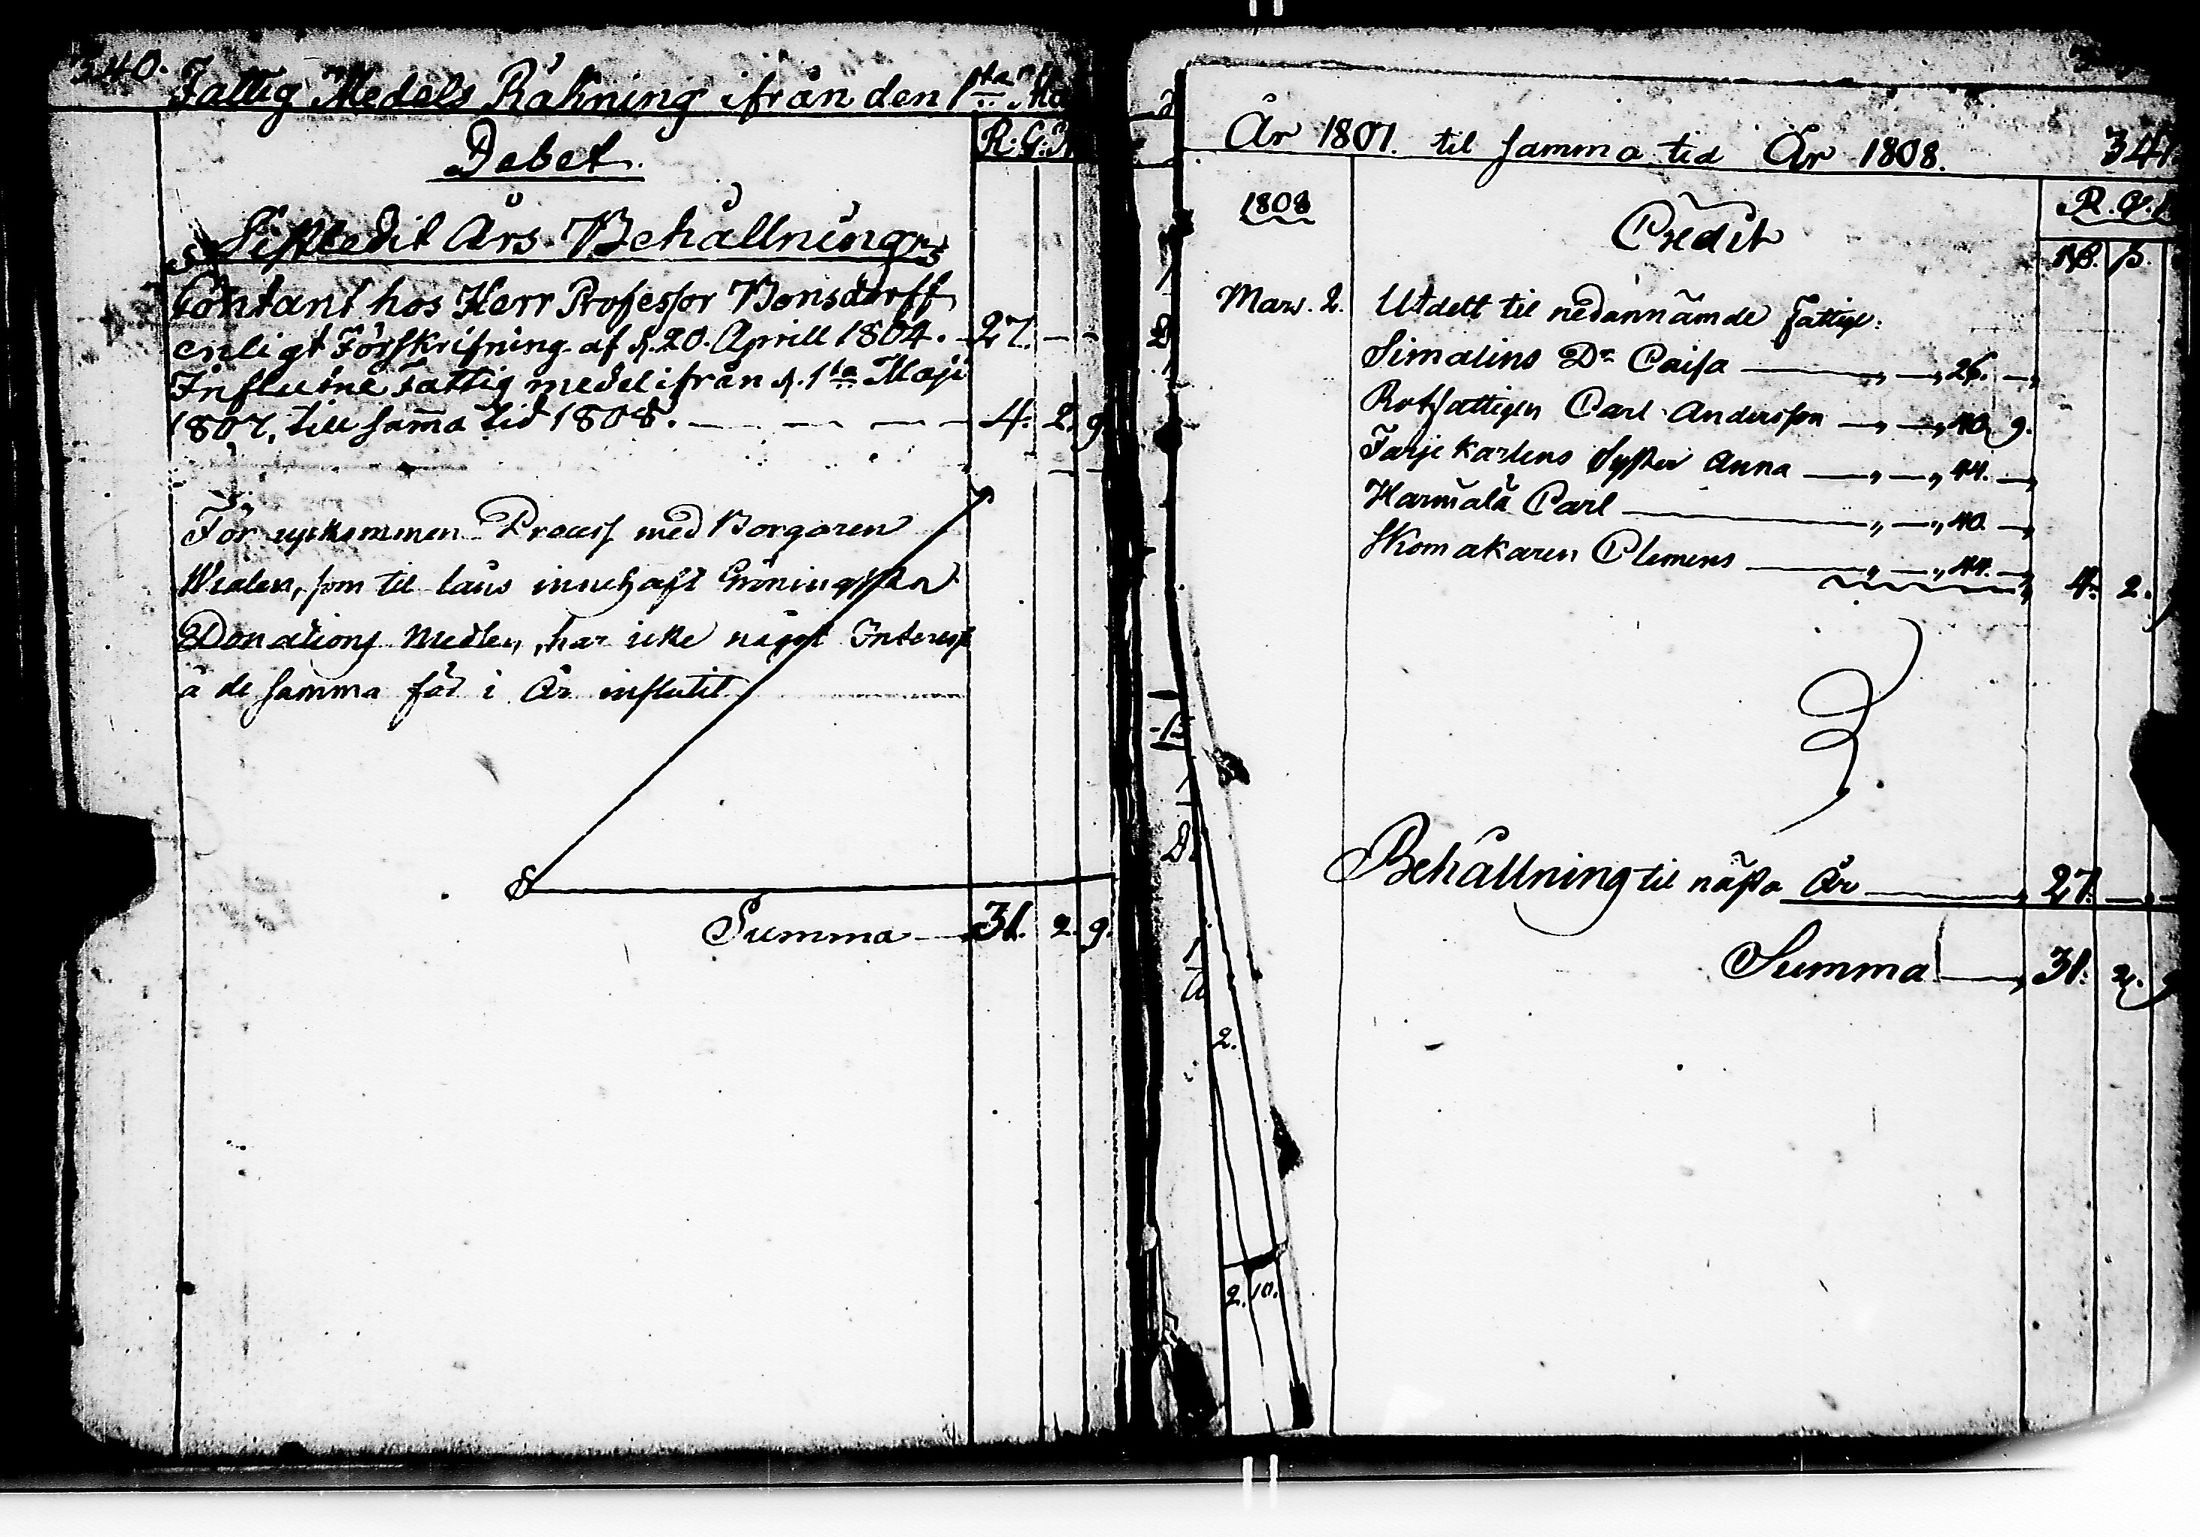 340.
Fattig Medels Räkning ifrån den 1sta Ma
Debet.
R: G: R
Sistledit Års Behållning
Contant hos Herr Professor Bonsdorff
enligt Förskrifning af d. 20. Aprill 1804. 27. — —
Influtne Fattig medel ifrån d. 1sta Maji
1807, till samma tid 1808. — — — — 4. 2. 9
För upkommen Process med Borgaren
som til låns innehaft
Donations Medlen, har icke något Interesse
å de samma för i År influtit
Summa — 31. 2. 9.
År 1807. til samma tid År 1808. 341
1808
Credit
R. G.
RB. ß.
Mars. 2. Utdelt til nedannämde fattige:
Simalins Dr Caisa — „ — „ 26. — „
Rotfattigen Carl Andersson — „ — „ 40. 9.
Färje karlens Syster Anna — „ — „ 44. — „
Härmälä Carl — „ — „ 40. — „
Skomakaren Clemens — „ — „ 44. — „ 4. 2.
Behållning til nästa År — 27. —
Summa — 31. 2. 9
2.
2. 10.